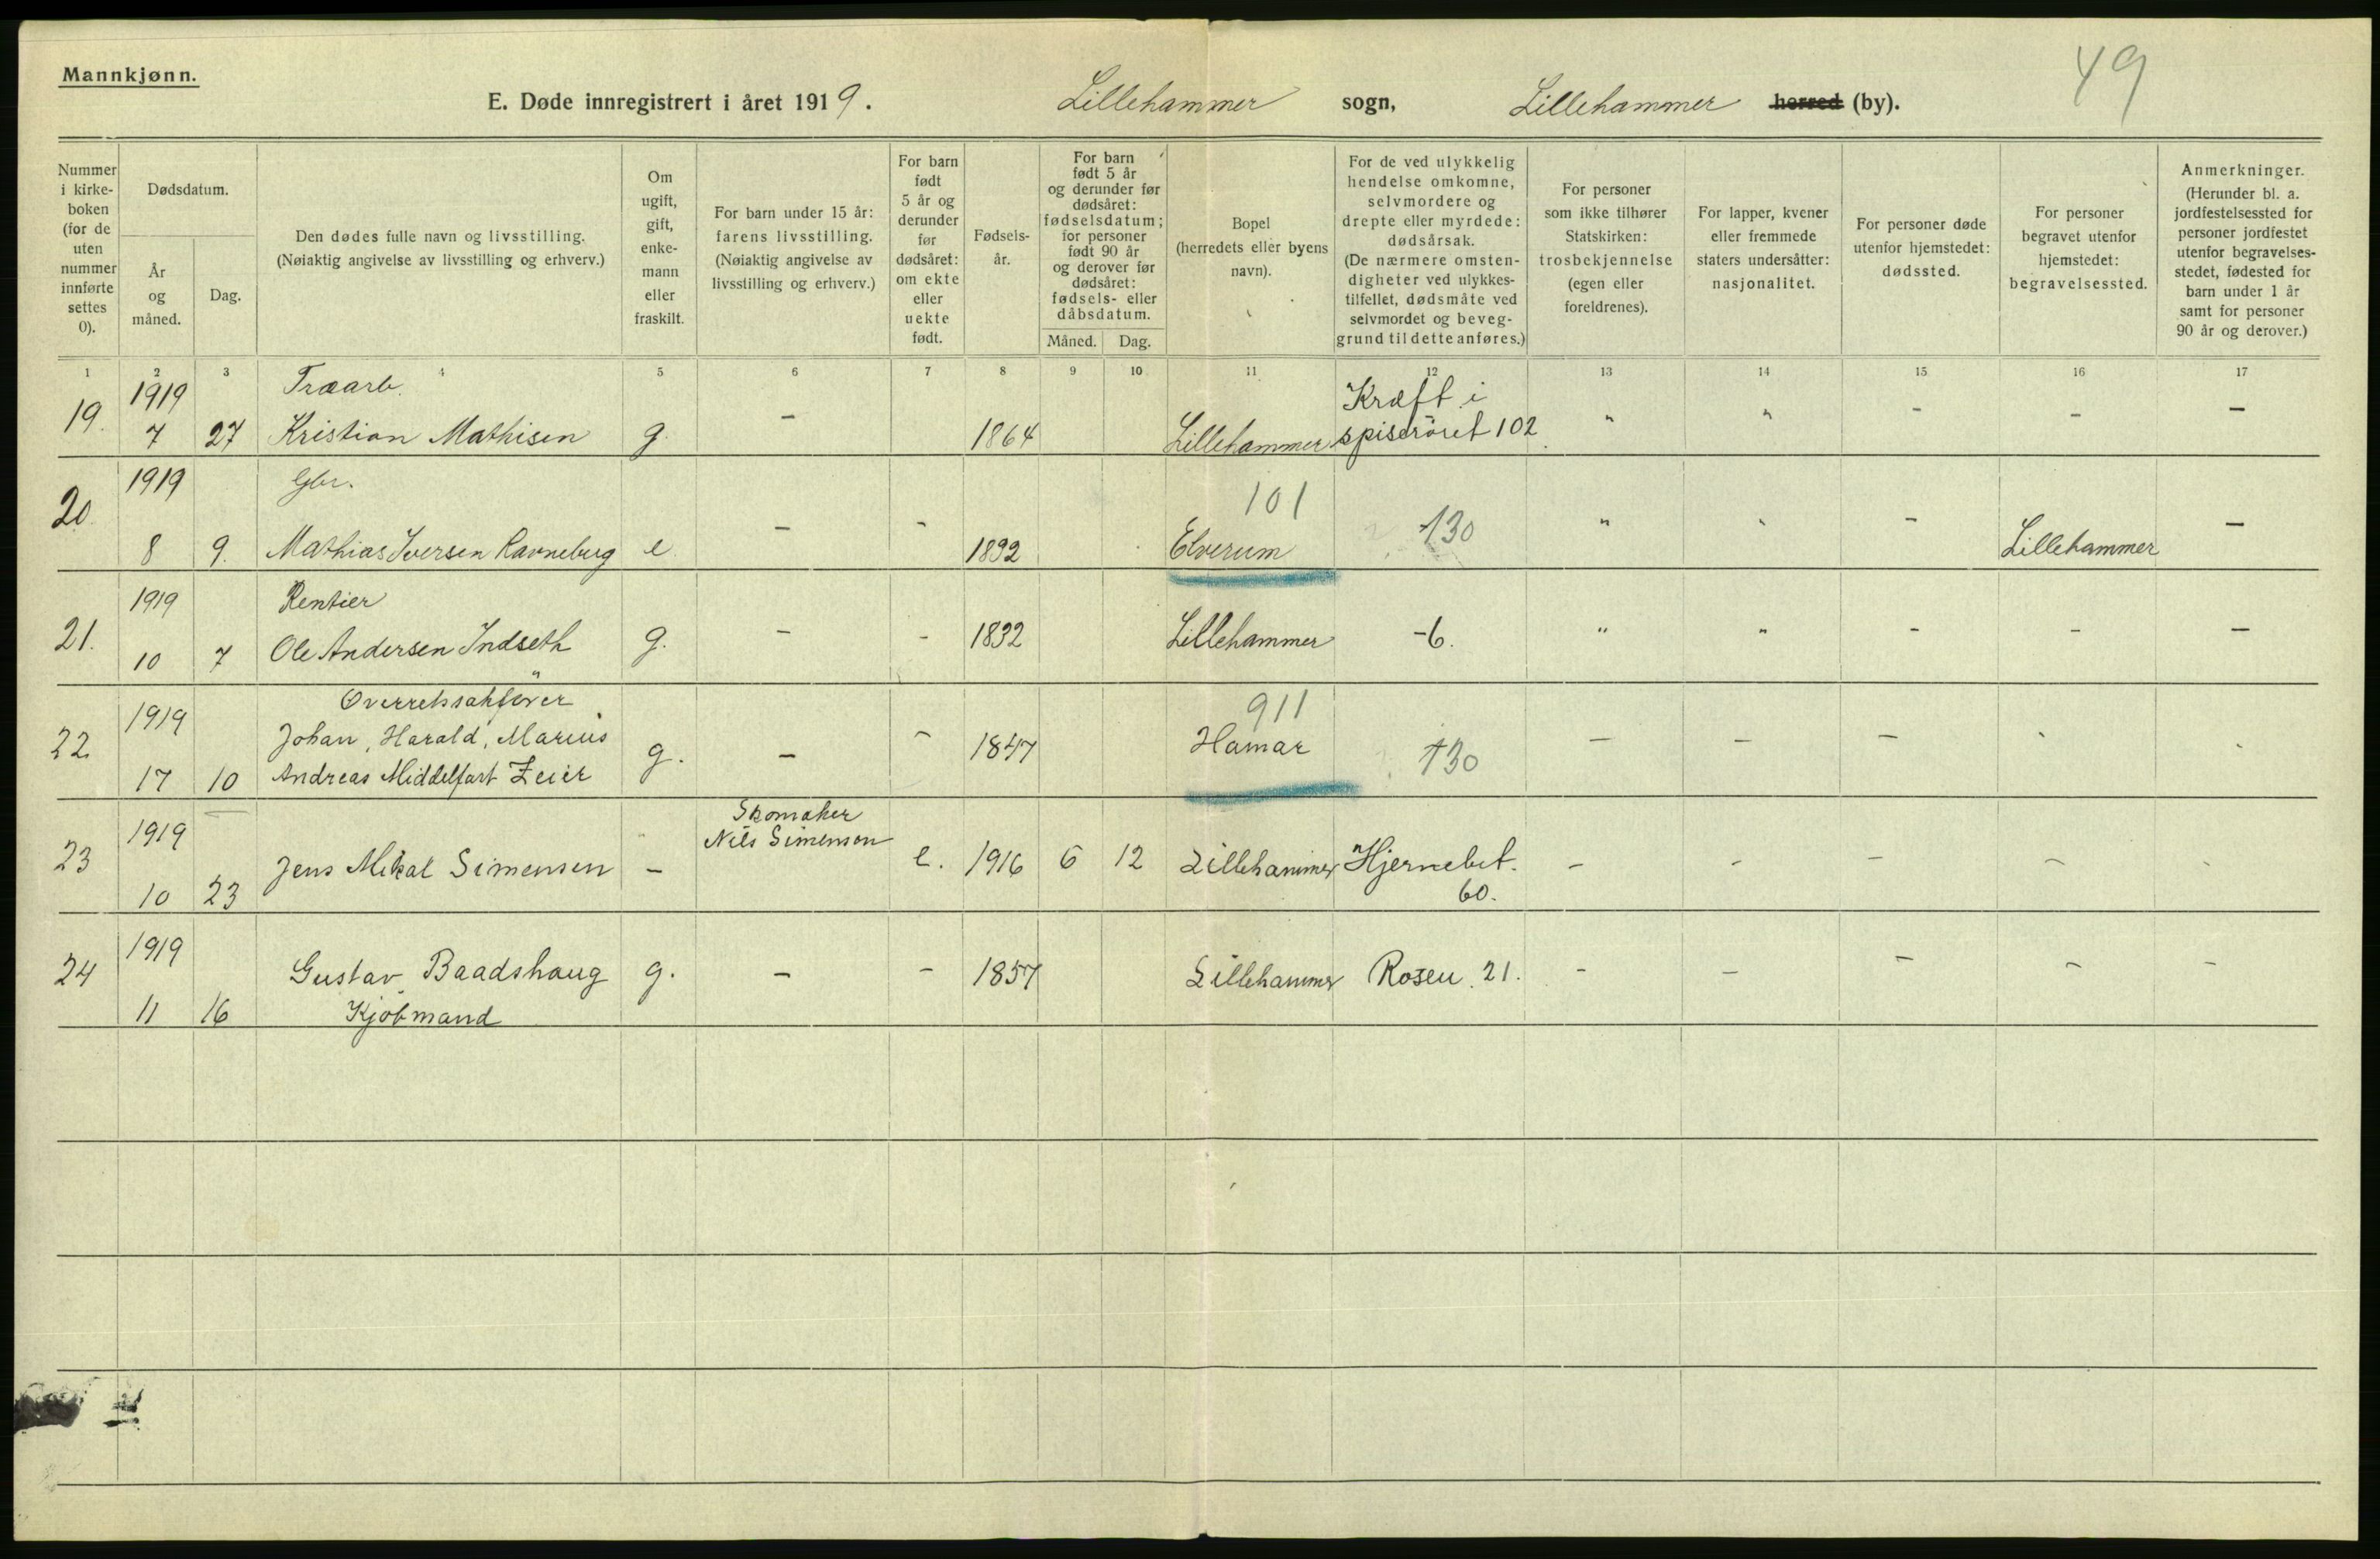 Mannkjønn.
49
E. Døde innregistrert i året 1919. Lillehammer sogn, Lillehammer herred (by).
Nummer i kirke- boken (for de uten nummer innførte settes 0).
Dødsdatum.
År og måned.
Dag.
Den dødes fulle navn og livsstilling. (Nøiaktig angivelse av livsstilling og erhverv.)
Om ugift, gift, enke- mann eller fraskilt.
For barn under 15 år: farens livsstilling. (Nøiaktig angivelse av livsstilling og erhverv.)
For barn født 5 år og derunder før dødsåret: om ekte eller uekte født.
Fødsels- år.
For barn født 5 år og derunder før dødsåret: fødselsdatum; for personer født 90 år og derover før dødsåret: fødsels- eller dåbsdatum.
Måned. Dag.
Bopel (herredets eller byens navn).
For de ved ulykkelig hendelse omkomne, selvmordere og drepte eller myrdede: dødsårsak. (De nærmere omsten- digheter ved ulykkes- tilfellet, dødsmåte ved selvmordet og beveg- grund til dette anføres.)
For personer som ikke tilhører Statskirken: trosbekjennelse (egen eller foreldrenes).
For lapper, kvener eller fremmede staters undersåtter: nasjonalitet.
For personer døde utenfor hjemstedet: dødssted.
For personer begravet utenfor hjemstedet: begravelsessted.
Anmerkninger. (Herunder bl. a. jordfestelsessted for personer jordfestet utenfor begravelses- stedet, fødested for barn under 1 år samt for personer 90 år og derover.)
1 2 3 4 5 6 7 8 9 10 11 12 13 14 15 16 17
1919 Træarb. Kræft i
19. 7 27 Kristian Mathisen g. - 1864 Lillehammer spiserøret 102 " " - - -
1919 Gbr. 101
20. 8 9. Mathias Iversen Ravneberg e. - - 1892 Elverum 130 " " - Lillehammer -
1919 Rentier
21. 10 7 Ole Andersen Indseth g. - - 1832 Lillehammer -6. " " - - -
1919 Overretssakfører 911
22. Johan, Harald, Marius g. - - 1847 Hamar 130 - - -
17 10 Andreas Middelfart Zeier
1919 Skomaker
Nils Simensen
23 Jens Mikal Simensen - e. 1916 6 12 Lillehammer Hjernebet. - - - -
10 23 60.
1919
24 Gustav Baadshaug g. - - 1857 Lillehammer Rosen. 21. - - - - -
11 16 Kjøbmand